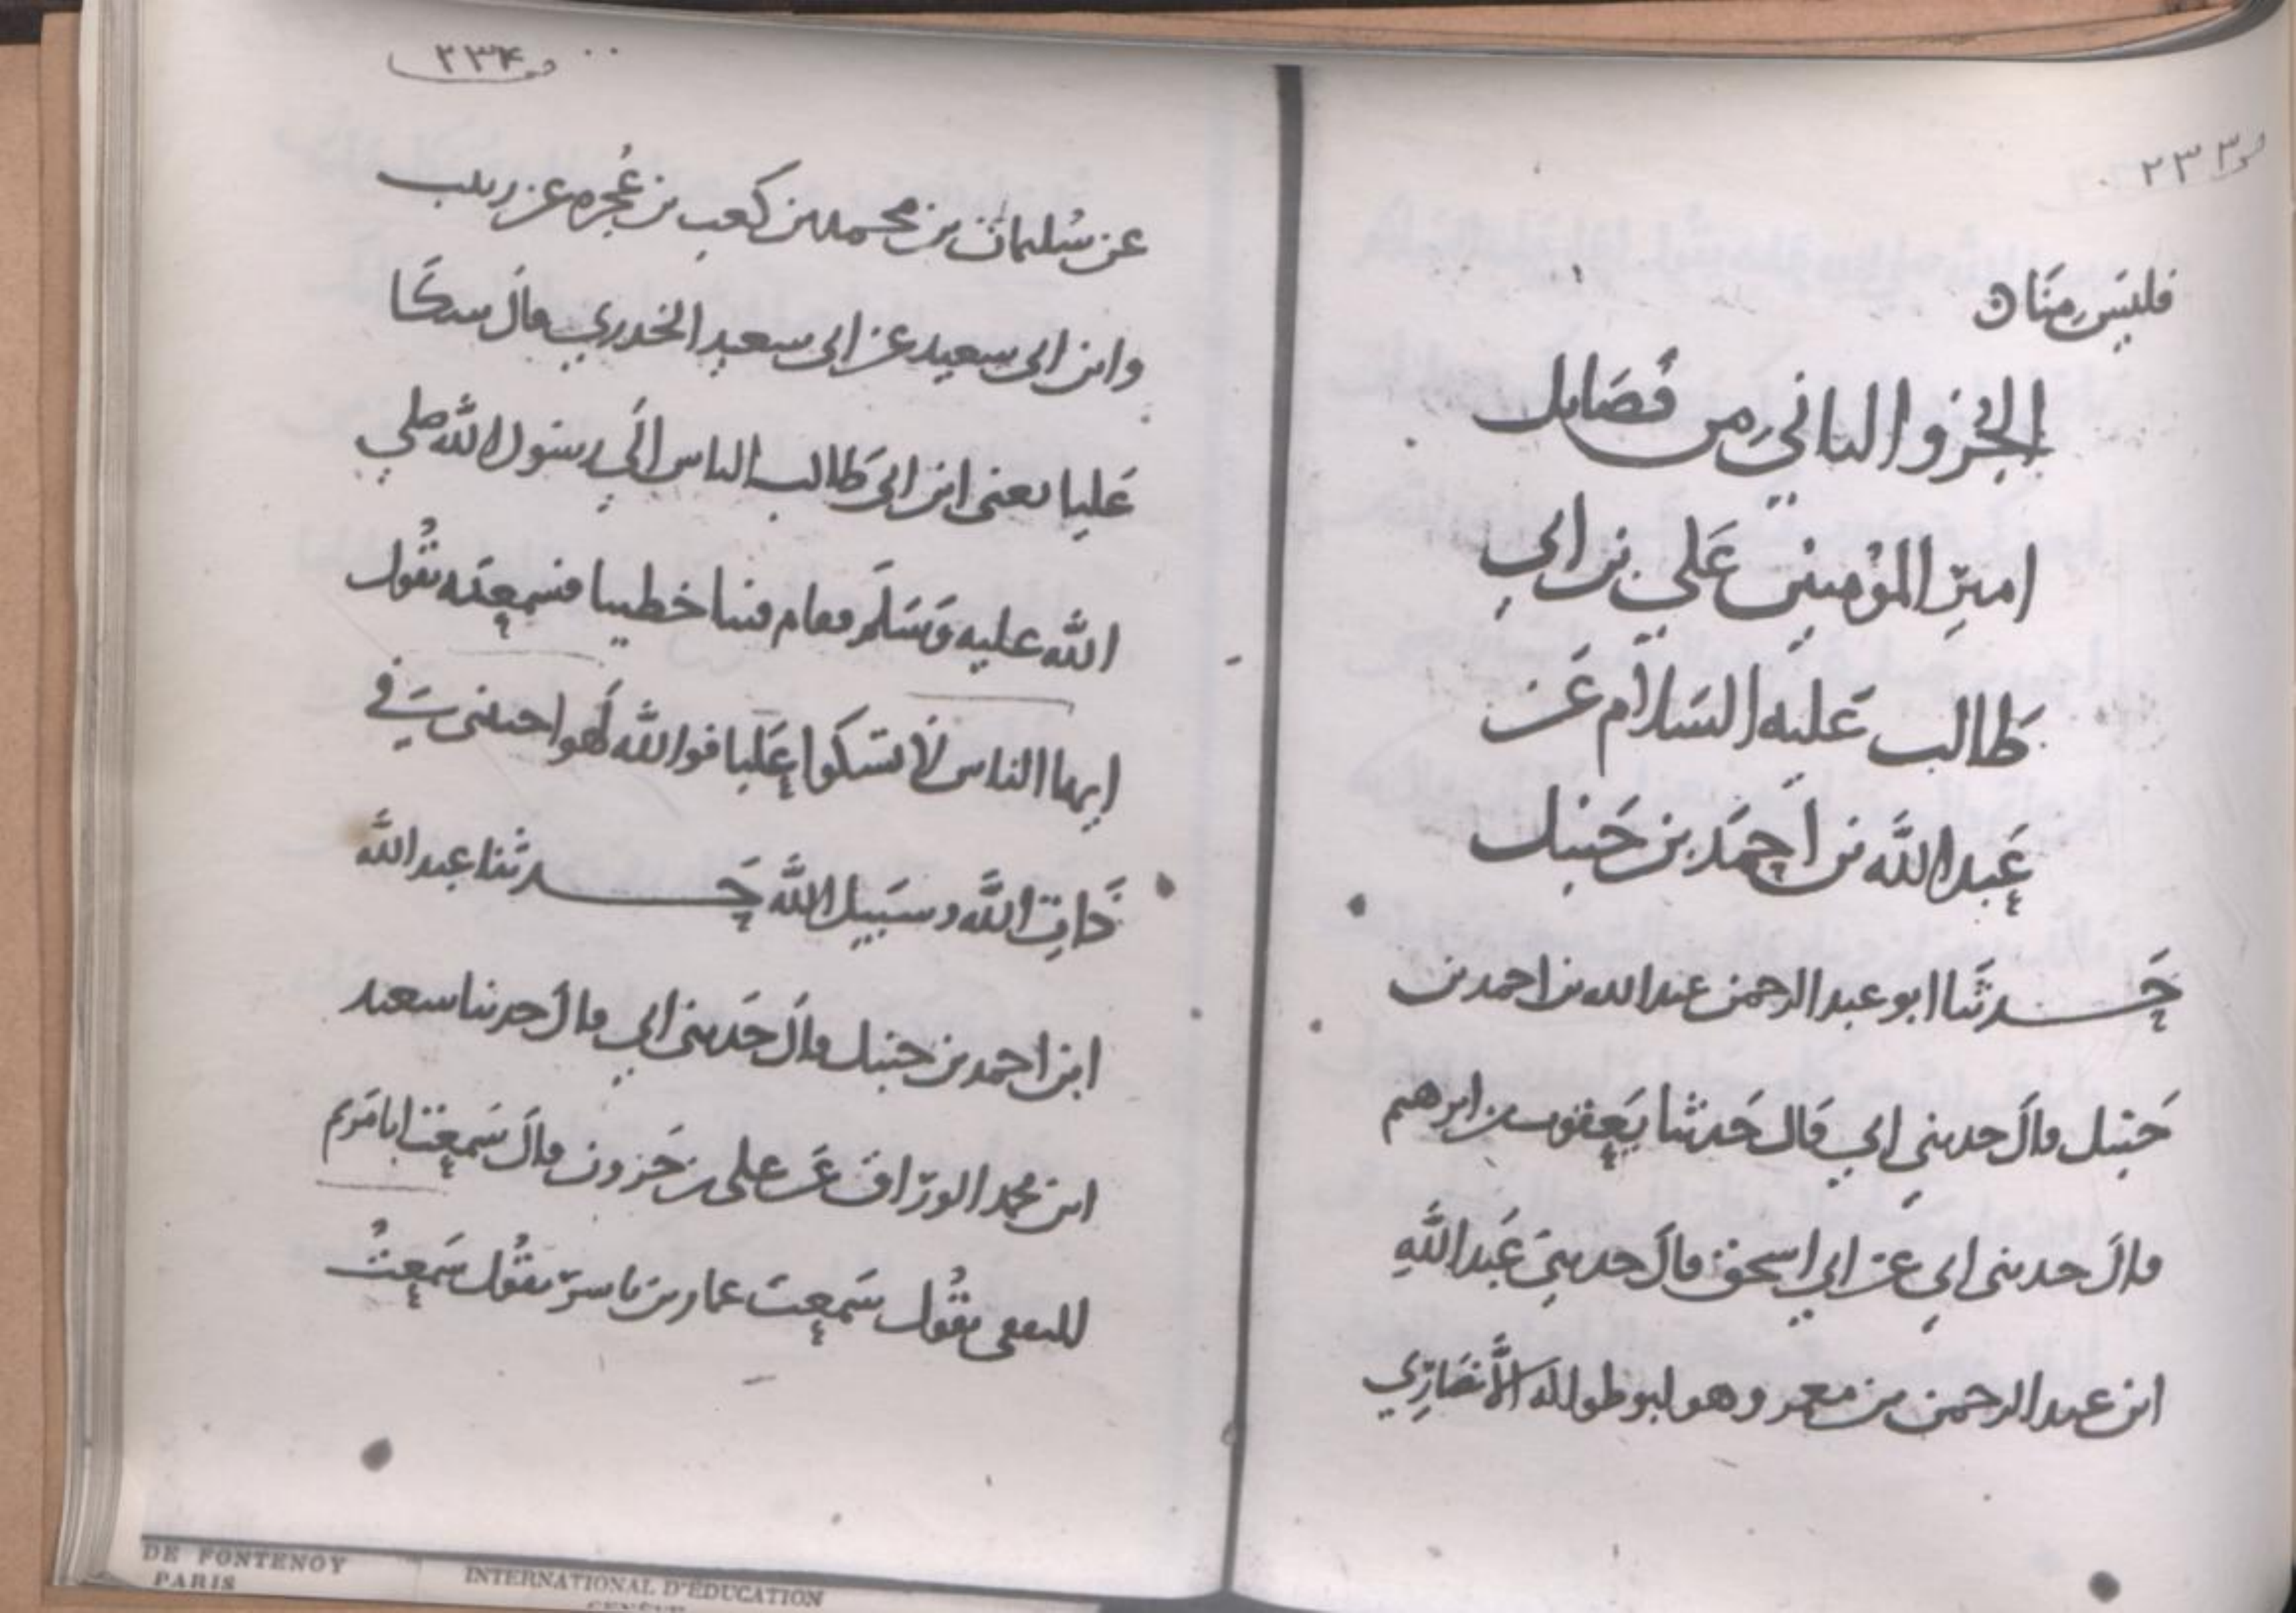 ٢٣٣
فليس منا ه
الجزو الثاني من فضايل
امير المؤمنين علي بن ابي
طالب عليه السلام عن
عبد الله بن احمد بن حنبل
حدثنا ابو عبد الرحمن عبد الله بن احمد بن
حنبل قال حدثني ابي قال حدثنا يعقوب بن ابرهيم
قال حدثني ابي عن ابي اسحق قال حدثني عبد الله
ابن عبد الرحمن بن معمر وهو ابو طوالة الأنصاري
٢٣٤
عن سليمان بن محمد بن كعب بن عجره عن زينب
وابن ابي سعيد عن ابي سعيد الخدري قال شكا
عليا يعني ابن ابي طالب الناس الي رسول الله صلي
الله عليه وسلم فقام فينا خطيبا فسمعته يقول
ايها الناس لا تشكوا عليا فوالله لهو احسني في
ذات الله وسبيل الله حدثنا عبد الله
ابن احمد بن حنبل قال حدثني ابي قال حدثنا سعيد
ابن محمد الوراق عن علي بن حزور قال سمعت ابا مريم
الثقفي يقول سمعت عمار بن ياسر يقول سمعت
DE FONTENOY
PARIS
INTERNATIONAL D'EDUCATION